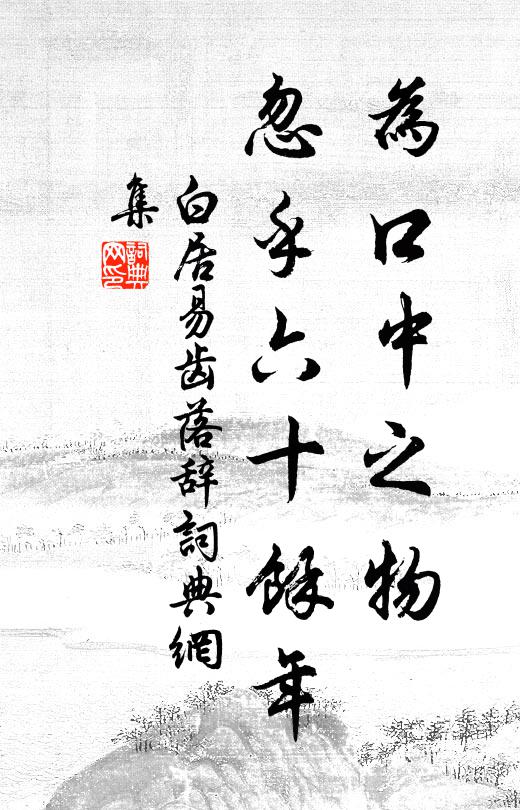 為口中之物
忽乎六十餘年
白居易齿落辞詞典網
集
詞典網印